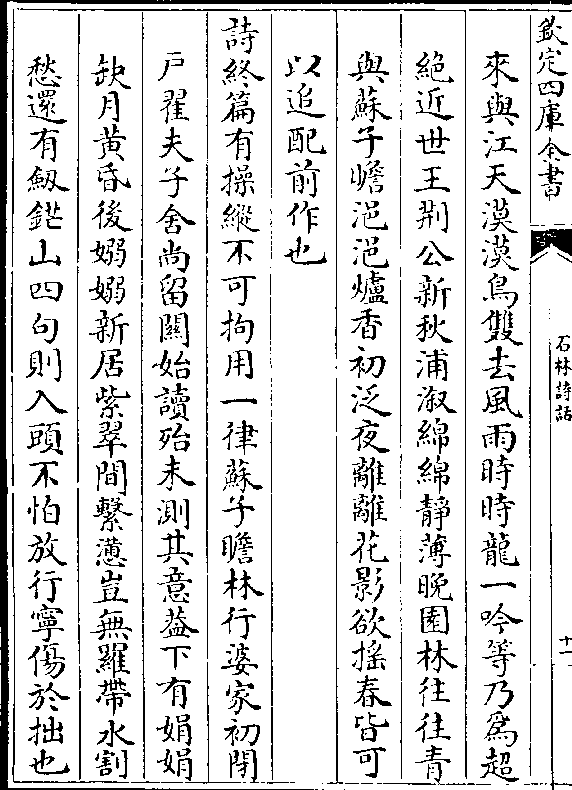 欽定四庫全書
石林詩話
十一
來與江天漠漠鳥雙去風雨時時龍一吟等乃為超
絕近世王荆公新秋浦溆綿綿靜薄晚園林往往青
與蘇子瞻浥浥爐香初泛夜離離花影欲搖春皆可
以追配前作也
詩終篇有操縱不可拘用一律蘇子瞻林行婆家初閉
戸翟夫子舍尚留關始讀殆未測其意葢下有娟娟
缺月黄昏後嫋嫋新居紫翠間繫懣豈無羅帶水割
愁還有劔鋩山四句則入頭不怕放行寧傷於拙也